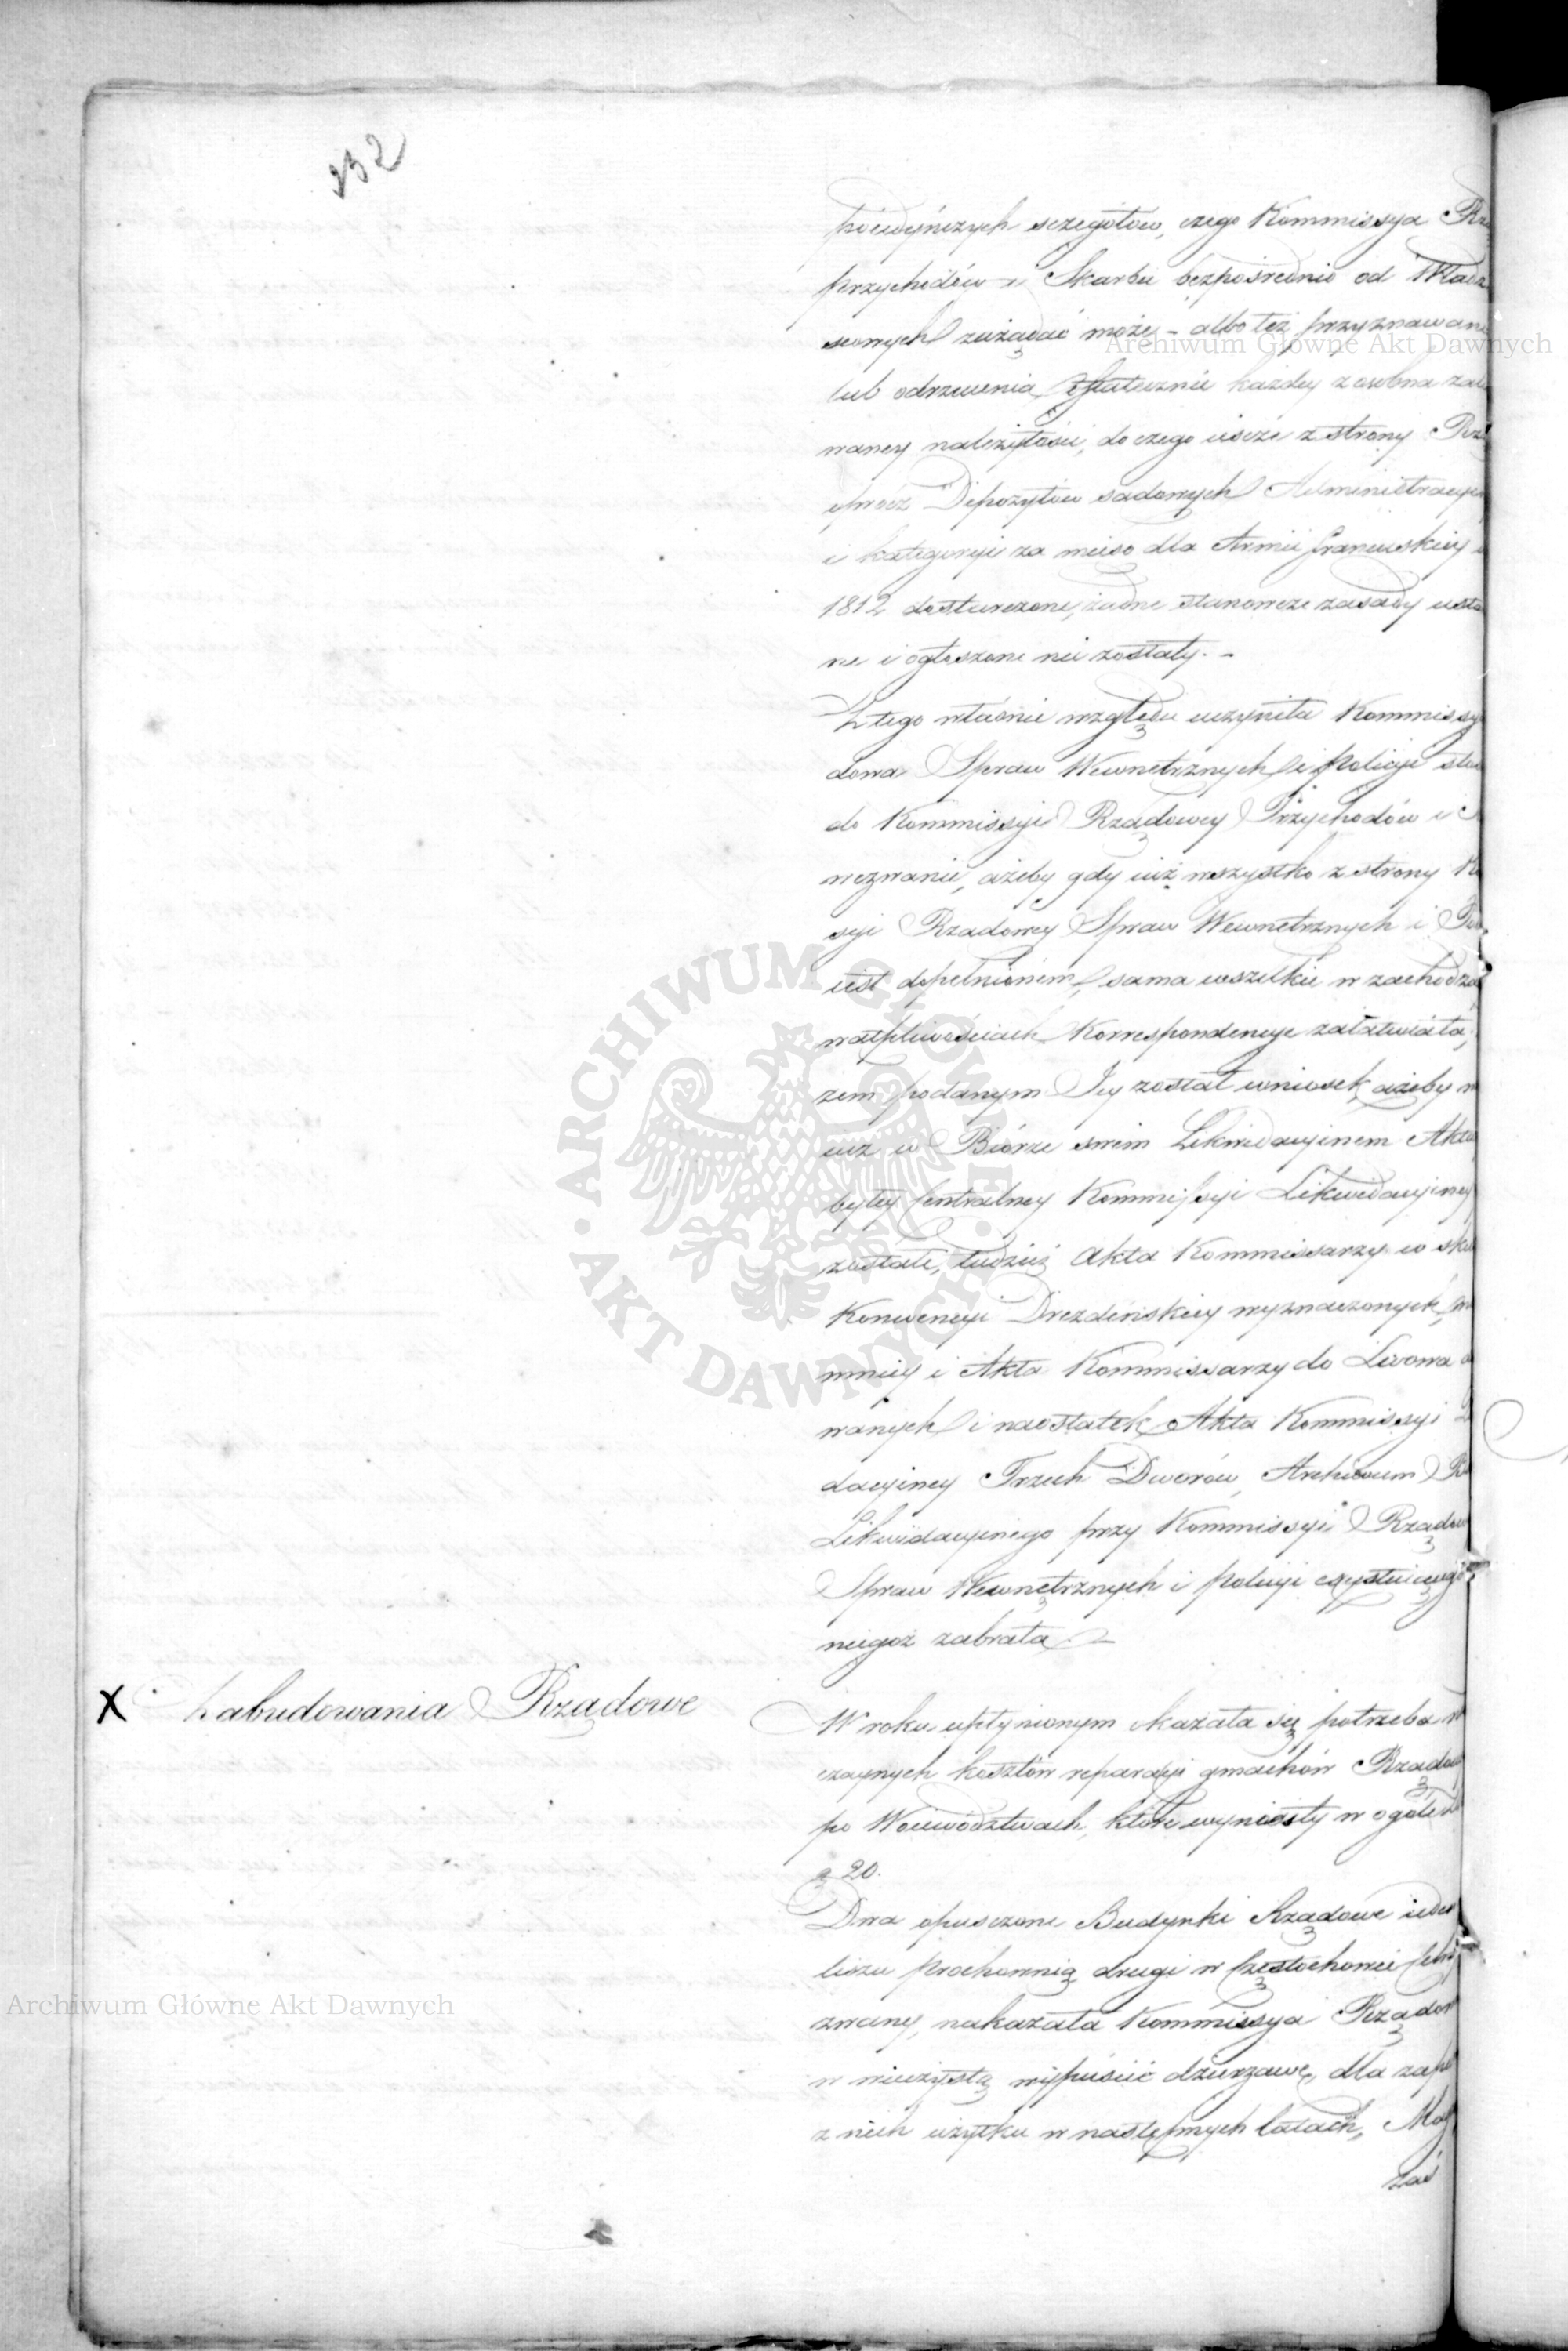 232
poiedyńczych sczegołow, czego Kommissya Rz
przychodów i Skarbu bezpośrednio od Władz
zażądać może – albo też przyznawani
lub odrzucenia ostatecznie każdey z osobna
waney należytości, do czego iescze z strony Rzą
oprócz Depozytow sądowych Administracyi
i kategoryi za mięso dla Armii francuskiey
1812 dostarczone, żadne stanowcze zasady usta
ne i ogłoszone nie zostały. –
Z tego właśnie względu uczyniła Kommissy
dowa Spraw Wewnętrznych i Policyi
do Kommissyi Rządowey Przychodów i S
wezwanie, ażeby gdy iuż wszystko z strony Ko
syi Rządowey Spraw Wewnętrznych i Po
iest dopełnionem, sama wszelkie w zachodzą
wątpliwościach Korrespondencye załatwiała,
zem podanym Jey został wniosek ażeby
iuż w Biórze swém Likwidacyinem Akta
byłey Centralney Kommissyi Likwidacyiney
zostałe, tudzież Akta Kommissarzy w sku
Konwencyi Drezdeńskiey wyznaczonych,
mniey i Akta Kommissarzy do Lwowa
wanych i naostatek Akta Kommissyi Li
dacyiney Trzech Dworów, Archiwum
Likwidacyinego przy Kommissyi Rządow
Spraw Wewnętrznych i policyi exystuiącego
niegoż zabrała. –
X Zabudowania Rządowe
W roku upłynionym okazała się potrzeba
czaynych kosztów reparacyi gmachów Rządow
po Woiewództwach, które wyniosły w ogóle
g 20.
Dwa opusczone Budynki Rządowe ieden
liszu prochownią drugi w Częstochowie
zwany, nakazała Kommissya Rządow
w wieczystą wypuścić dzierzawę, dla zape
z nich użytku w następnych latach,
zaś
Archiwum Główne Akt Dawnych
Archiwum Główne Akt Dawnych
ARCHIWUM GŁÓWNE AKT DAWNYCH